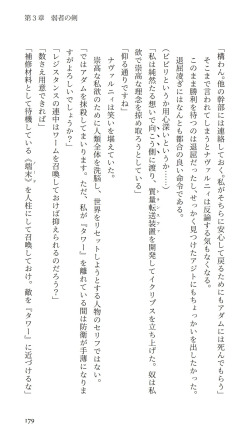 第3章　弱者の剣
「構わん。他の幹部には連絡しておく。私がそちらに安心して戻るためにもアダムには死んでもらう」
そこまで言われてしまうとナヴァルニィは反論する気もなくなる。
このまま勝利を待つのは退屈だったし、せっかく見つけたアジトにもちょっかいを出したかった。
退屈凌ぎにはなんとも都合の良い命令である。
（ビビりというか用心深いというか……）
「私は純然たる想いで向こう側に渡り、質量転送装置を開発してイクリプスを立ち上げた。奴は私
欲で崇高な理念を掠め取ろうとしている」
「仰る通りですね」
ナヴァルニィは笑いを堪えていた。
崇高な私欲のために人類全体を洗脳し、世界をリセットしようとする人物のセリフではない。
「ではアダムを抹殺してまいります。ただ、私が『タワー』を離れている間は防衛が手薄になりま
すがよろしいでしょうか？」
「レジスタンスの連中はゲームを召喚しておけば抑えられるのだろう？」
「数さえ用意できれば」
「補修材料として待機している《端末》を人柱にして召喚しておけ。敵を『タワー』に近づけるな」
179